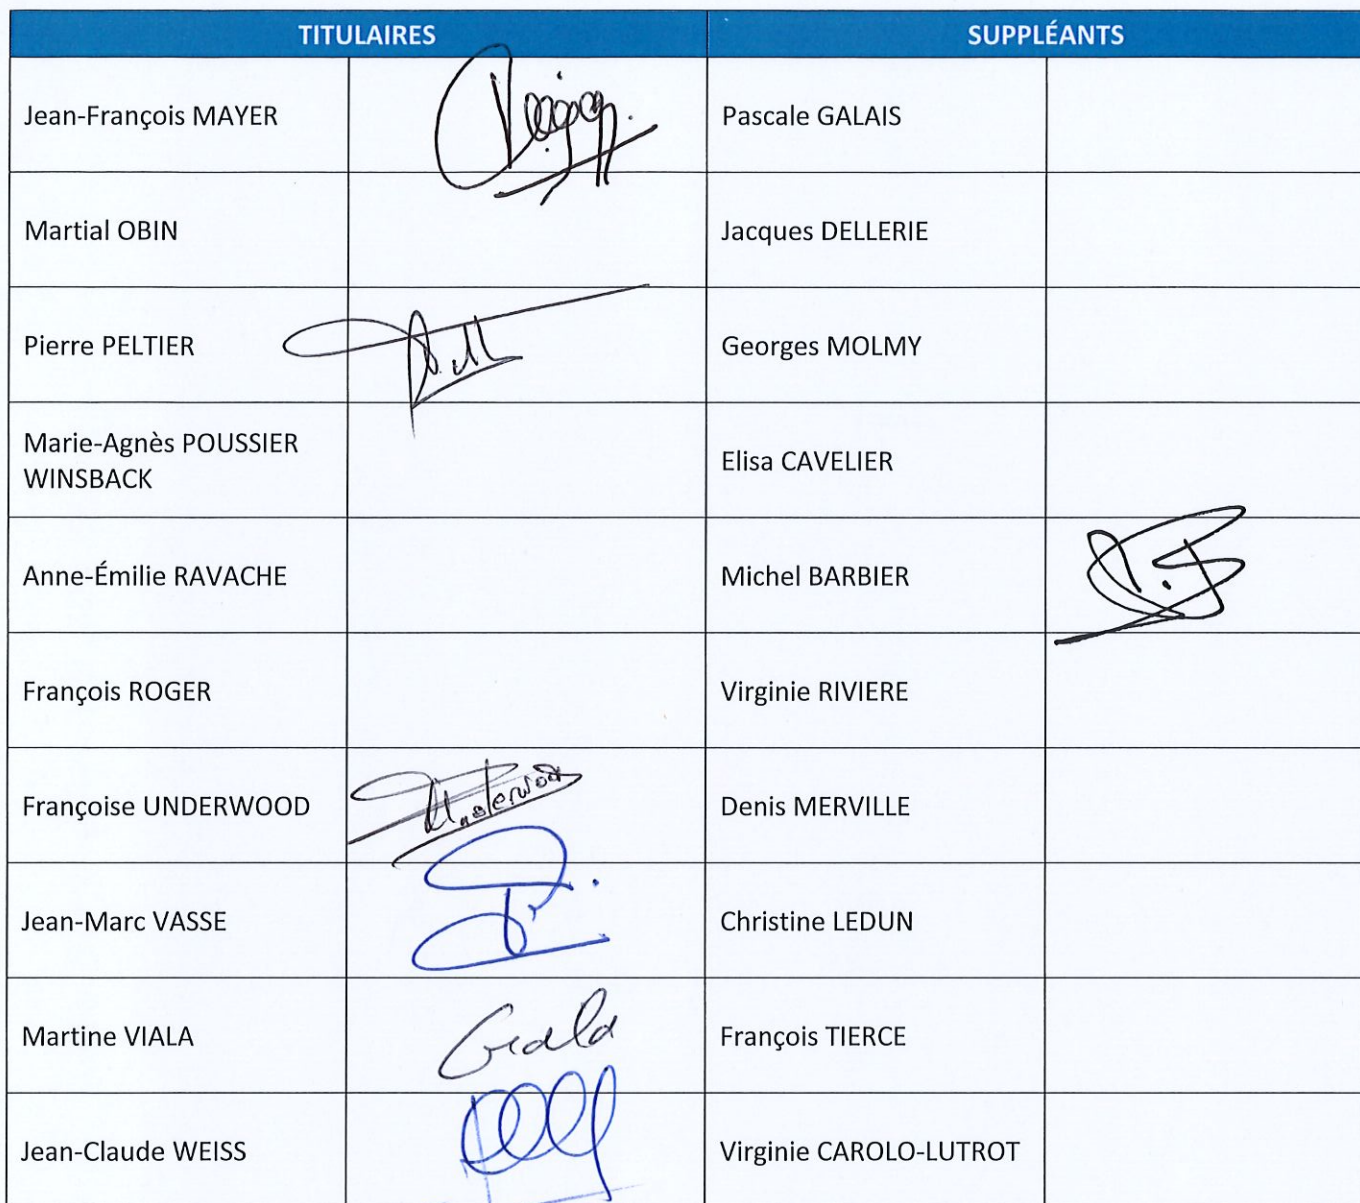 TITULAIRES SUPPLÉANTS
Jean-François MAYER Pascale GALAIS
Martial OBIN Jacques DELLERIE
Pierre PELTIER Georges MOLMY
Marie-Agnès POUSSIER
WINSBACK
Elisa CAVELIER
Anne-Émilie RAVACHE Michel BARBIER
François ROGER Virginie RIVIERE
Françoise UNDERWOOD Underwood Denis MERVILLE
Jean-Marc VASSE Christine LEDUN
Martine VIALA Viala François TIERCE
Jean-Claude WEISS Virginie CAROLO-LUTROT